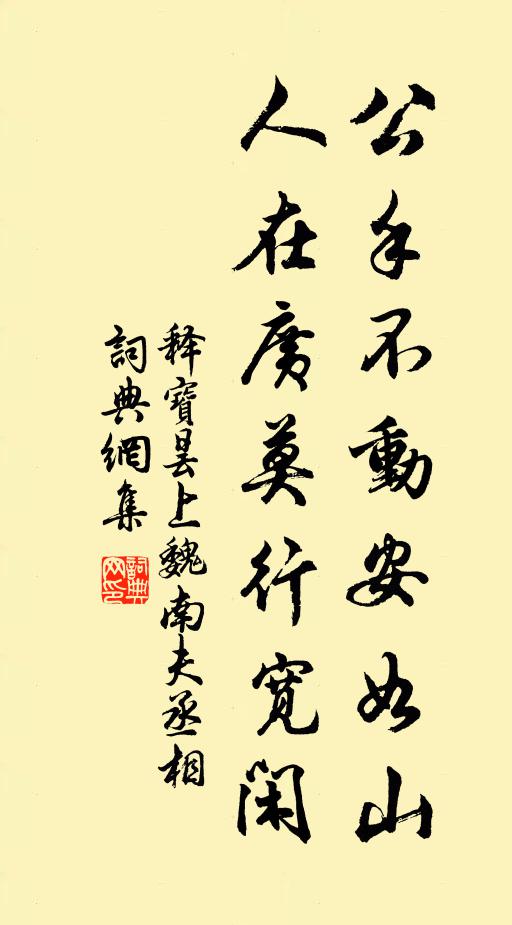 公手不動安如山
人在廣莫行寬閑
释寶曇上魏南夫丞相
詞典網集
詞典网印